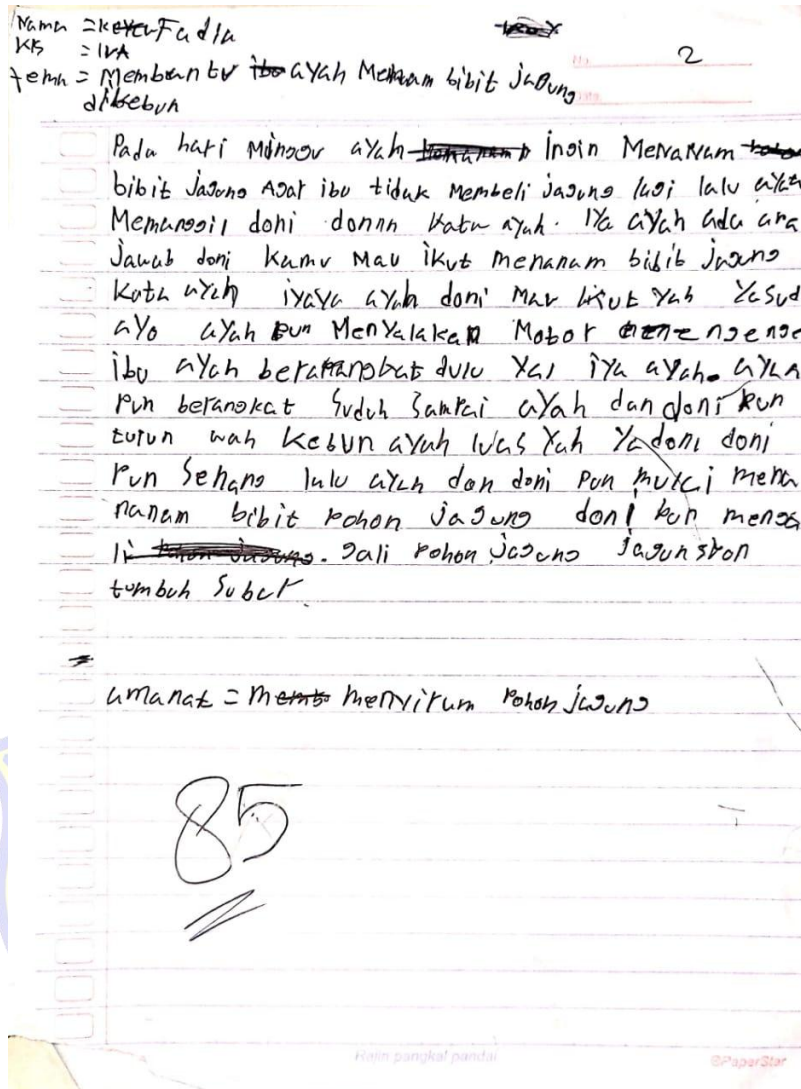 Nama = Fadla
Kls = IVA
No.
2
Date
tema = Membantu ayah Menam bibit jagung
dikebun
Pada hari Minggu ayah ingin Menanam
bibit Jagung Agar ibu tidak Membeli jagung lagi lalu ayah
Memanggil doni donnn kata ayah. Iya ayah ada apa
Jawab doni kamu Mau ikut menanam bibit jagung
kata ayah iyaya ayah doni mau ikut yah yasud
ayo ayah pun Menyalakan Motor ngenge
ibu ayah berangkat dulu ya iya ayah. ayah
pun berangkat Sudah Sampai ayah dan doni pun
turun wah kebun ayah luas yah ya doni doni
pun Senang lalu ayah dan doni pun mulai mena
nanam bibit pohon jagung doni pun mengga
li gali pohon jagung
tumbuh Subur
amanat = menyiram pohon jagung
85
Rajin pangkal pandai
PaperStar